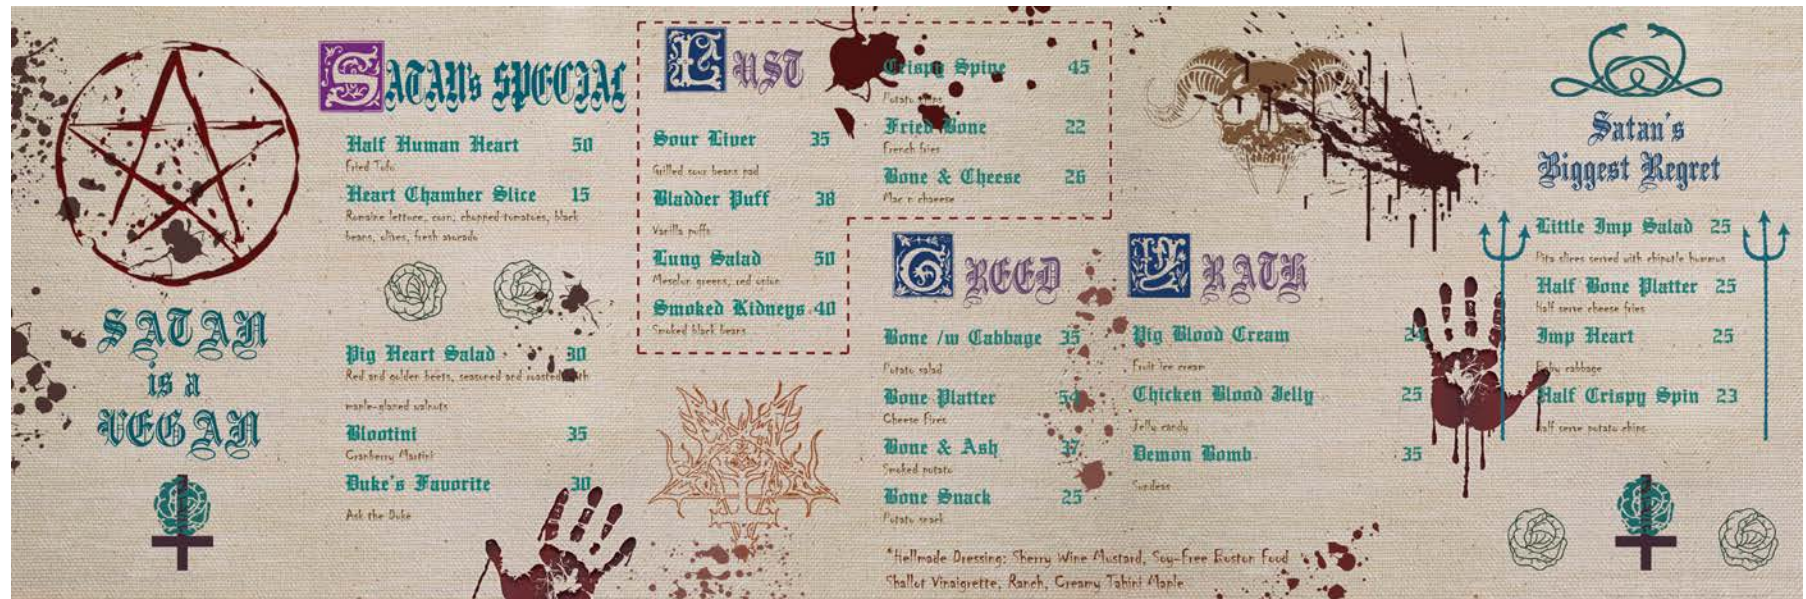 SATAN
is a
VEGAN
SATAN's SPECIAL
Half Human Heart 50
Fried Tofo
Heart Chamber Slice 15
Romaine lettuce, corn, chopped tomatoes, black
beans, olives, fresh avocado
Pig Heart Salad 30
Red and golden beets, seasoned and roasted with
maple-glaned walnuts
Blootini 35
Cranberry Martini
Duke's Favorite 30
Ask the Duke
LUST
Sour Liver 35
Grilled sour beans pad
Bladder Puff 38
Vanilla puffs
Lung Salad 50
Mesclun greens, red onion
Smoked Kidneys 40
Smoked black beans
Crispy Spine 45
Potato chips
Fried Bone 22
French fries
Bone & Cheese 26
Mac n cheese
GREED
Bone /w Cabbage 35
Potato salad
Bone Platter 54
Cheese Fires
Bone & Ash 37
Smoked potato
Bone Snack 25
Potato snack
WRATH
Pig Blood Cream 24
Fruit ice cream
Chicken Blood Jelly 25
Jelly candy
Demon Bomb 35
Sundeas
*Hellmade Dressing: Sherry Wine Mustard, Soy-Free Boston Food
Shallot Vinaigrette, Ranch, Creamy Tahini Maple
Satan's
Biggest Regret
Little Imp Salad 25
Pita slices served with chipotle hummus
Half Bone Platter 25
Half serve cheese fries
Imp Heart 25
Baby cabbage
Half Crispy Spin 23
Half serve potato chips